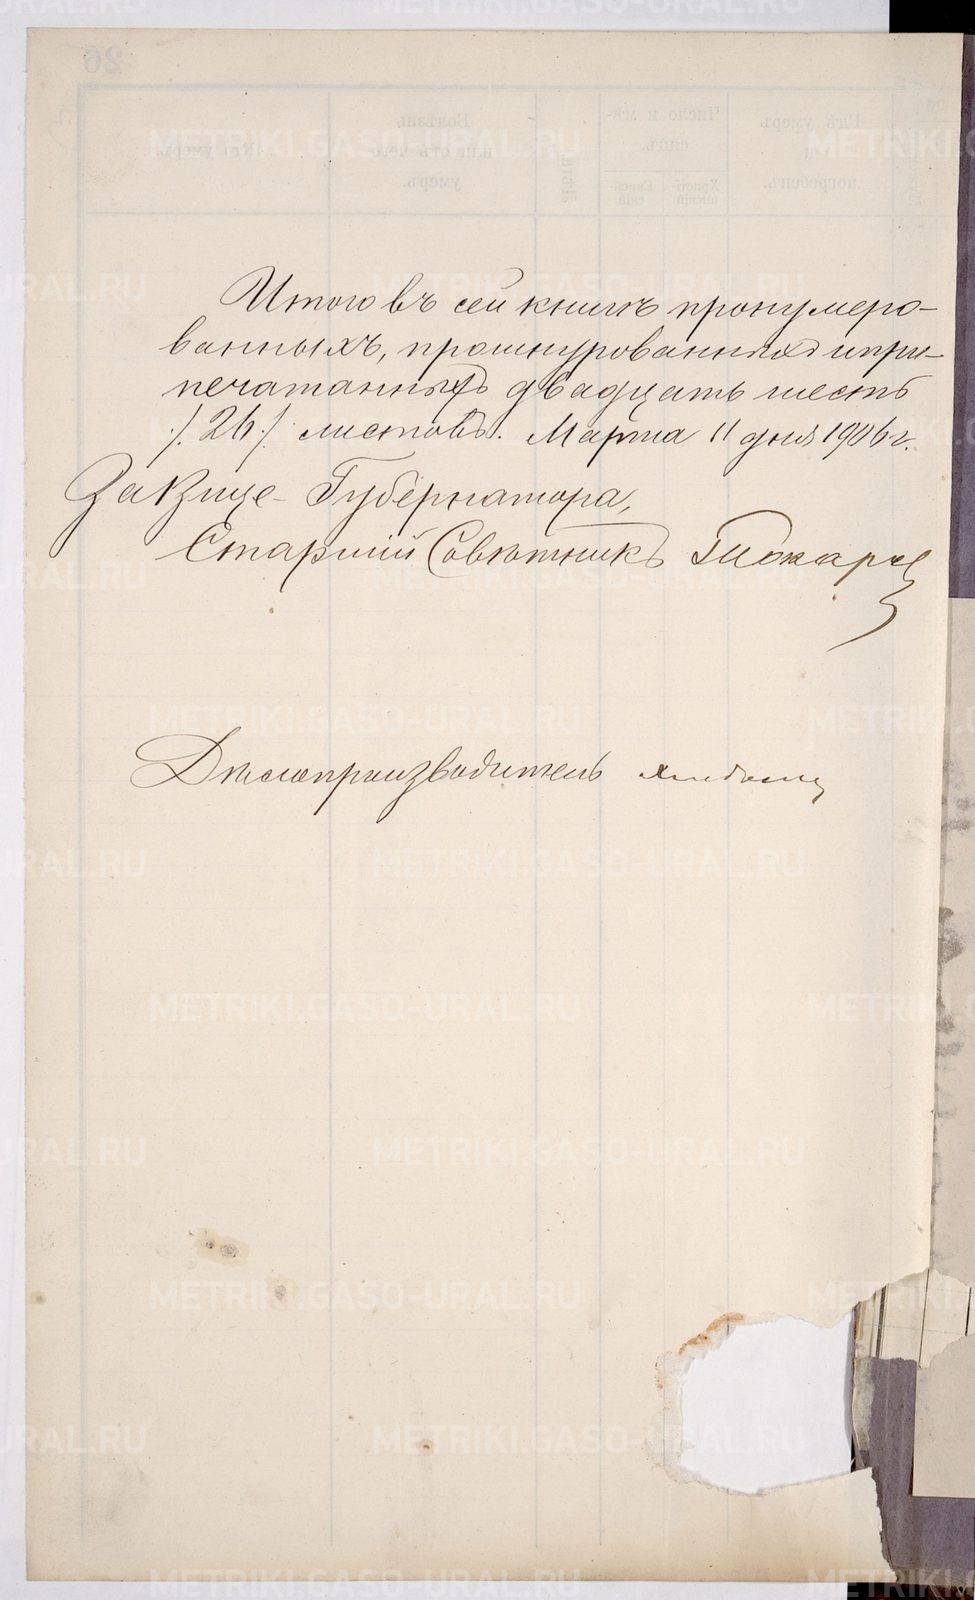 Итого въ сей книгѣ пронумеро-
ванныхъ, прошнурованныхъ и при-
печатанныхъ двадцать шесть
/. 26 ./ листовъ. Марта 11 дня 1906 г.
За Вице-Губернатора,
Старшій Совѣтникъ
Дѣлопроизводитель